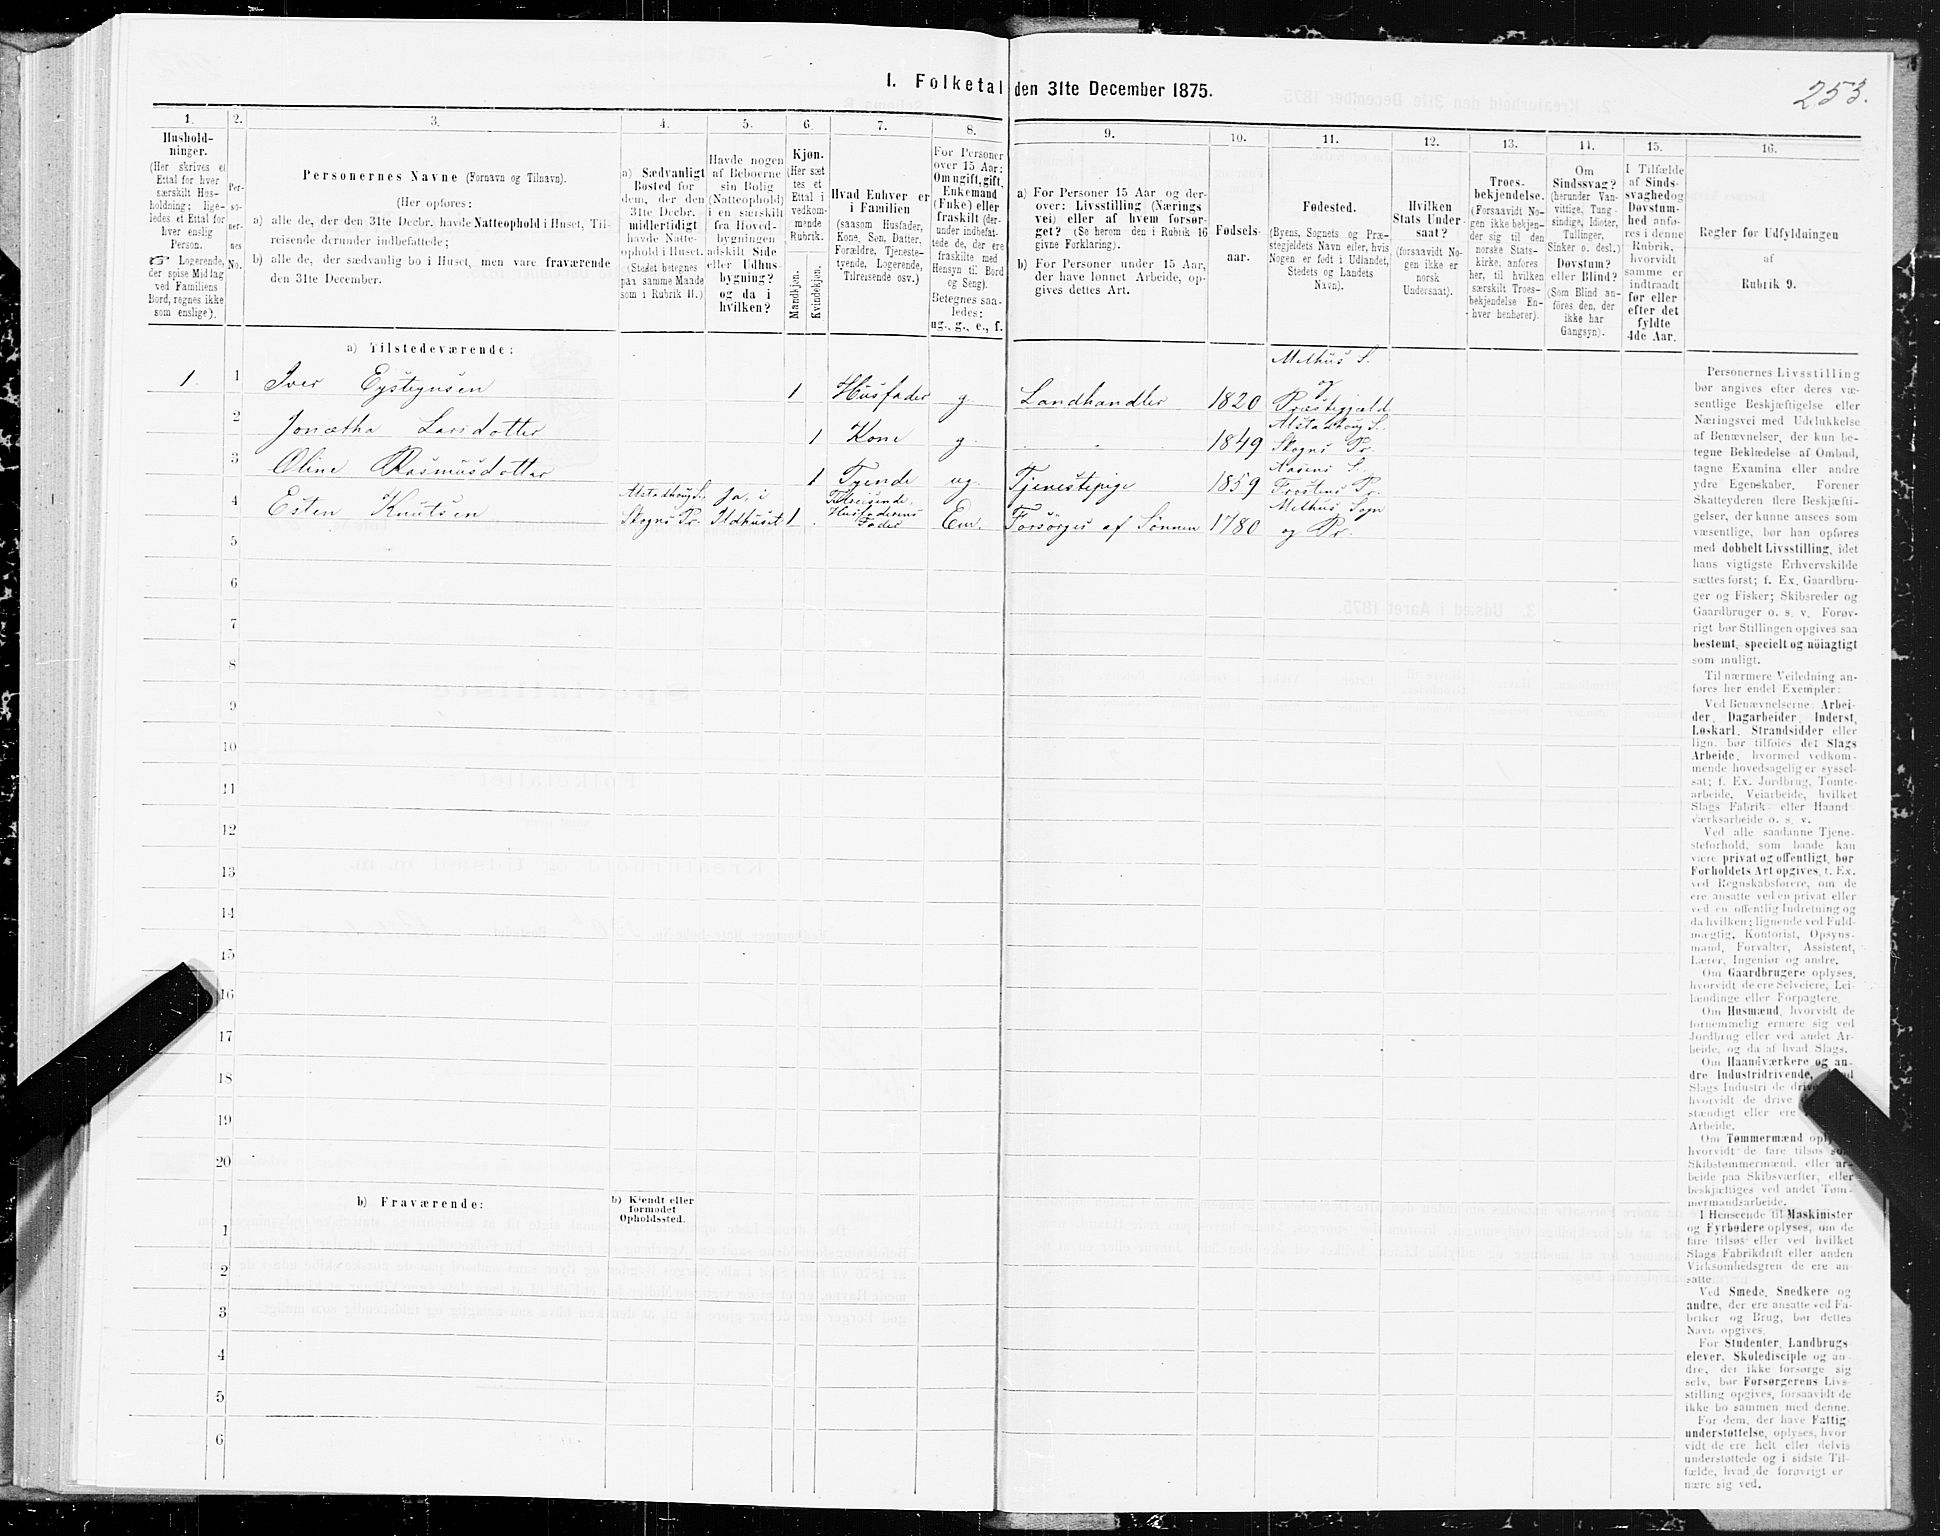 253.
I. Folketal den 31te December 1875.
1.
2.
3.
4.
5.
6.
7.
8.
9.
10.
11.
12.
13.
14.
15.
16.
Hushold-
ninger.
(Her skrives et
Ettal for hver
særskilt Hus-
holdning; lige-
ledes et Ettal for
hver enslig
Person.
☞ Logerende,
der spise Middag
ved Familiens
Bord, regnes ikke
som enslige).
Per-
so-
ner-
nes
No.
Personernes Navne (Fornavn og Tilnavn).
(Her opføres:
a) alle de, der den 31te Decbr. havde Natteophold i Huset, Til-
reisende derunder indbefattede;
b) alle de, der sædvanlig bo i Huset, men vare fraværende
den 31te December.
a) Sædvanligt
Bosted for
dem, der den
31te Decbr.
midlertidigt
havde Natte-
ophold i Huset.
(Stedet betegnes
paa samme Maade
som i Rubrik 11.)
Havde nogen
af Beboerne
sin Bolig
(Natteophold)
i en særskilt
fra Hoved-
bygningen
adskilt Side
eller Udhus-
bygning?
og da i
hvilken?
Kjøn.
(Her sæt
tes et
Ettal i
vedkom-
mende
Rubrik.
Mandkjøn.
Kvindekjøn.
Hvad Enhver er
i Familien
(saasom Husfader,
Kone, Søn, Datter,
Forældre, Tjeneste-
tyende, Logerende,
Tilreisende osv.)
For Personer
over 15 Aar:
Om ugift, gift,
Enkemand
(Enke) eller
fraskilt (der-
under indbefat-
tede de, der ere
fraskilte med
Hensyn til Bord
og Seng).
Betegnes saa-
ledes:
ug., g., e., f.
a) For Personer 15 Aar og der-
over: Livsstilling (Nærings-
vei) eller af hvem forsør-
get? (Se herom den i Rubrik 16
givne Forklaring).
b) For Personer under 15 Aar,
der have lønnet Arbeide, op-
gives dettes Art.
Fødsels-
aar.
Fødested.
(Byens, Sognets og Præ-
stegjeldets Navn eller, hvis
Nogen er født i Udlandet,
Stedets og Landets
Navn).
Hvilken
Stats Under-
saat?
(forsaavidt No-
gen ikke er
norsk
Undersaat).
Troes-
bekjendelse.
(Forsaavidt No-
gen ikke bekjen-
der sig til den
norske Stats-
kirke, anføres
her, til hvilken
særskilt Troes-
bekjendelse En-
hver henhører).
Om
Sindssvag?
(herunder Van-
vittige, Tung-
sindige, Idioter,
Tullinger,
Sinker o. desl.)
Døvstum?
eller Blind?
(Som Blind an-
føres den, der
ikke har
Gangsyn).
I Tilfælde
af Sinds-
svaghed og
Døvstum-
hed anfø-
res i denne
Rubrik,
hvorvidt
samme er
indtraadt
før eller
efter det
fyldte
4de Aar.
Regler for Udfyldningen
af
Rubrik 9.
a) Tilstedeværende:
1. 1 Iver Eysteynsen 1 Husfader g. Landhandler 1820 Melhus S. og Præstegjæld
2 Jonætha Larsdotter 1 Kone g. 1849 Alstadhoug S. Skogns Pr.
3 Oline Rasmusdotter 1 Tyende ug. Tjenestepige 1859 Aasens S. Frostens Pr.
4 Esten Knutsen Alstadhoug S. Skogns Pr. Ja, i Ildhuset 1 Tilreisende, Husfaderens Fader Em. Forsørges af Sønnen 1780 Melhus Sogn og Pr.
5
6
7
8
9
10
11
12
13
14
15
16
17
18
19
20
b) Fraværende:
b) Kjendt eller
formodet
Opholdssted.
1
2
3
4
5
6
Personernes Livsstilling
bør angives efter deres væ-
sentlige Beskjæftigelse eller
Næringsvei med Udelukkelse
af Benævnelser, der kun be-
tegne Beklædelse af Ombud,
tagne Examina eller andre
ydre Egenskaber. Forener
Skatteyderen flere Beskjæfti-
gelser, der kunne ansees som
væsentlige, bør han opføres
med dobbelt Livsstilling, idet
hans vigtigste Erhvervskilde
sættes først; f. Ex. Gaardbru-
ger og Fisker; Skibsreder og
Gaardbruger o. s. v. Forøv-
rigt bør Stillingen opgives saa
bestemt, specielt og nøiagtigt
som muligt.
Til nærmere Veiledning an-
føres her endel Exempler:
Ved Benævnelserne: Arbei-
der, Dagarbeider, Inderst,
Løskarl, Strandsidder eller
lign. bør tilføies det Slags
Arbeide, hvormed vedkom-
mende hovedsagelig er syssel-
sat; f. Ex. Jordbrug, Tomte-
arbeide, Veiarbeide, hvilket
Slags Fabrik- eller Haand-
værksarbeide o. s. v.
Ved alle saadanne Tjene-
steforhold, som baade kan
være privat og offentligt, bør
Forholdets Art opgives, f. Ex.
ved Regnskabsførere, om de
ere ansatte ved en privat eller
ved en offentlig Indretning og
da hvilken; lignende ved Fuld-
mægtig, Kontorist, Opsyns-
mand, Forvalter, Assistent,
Lærer, Ingeniør og andre.
Om Gaardbrugere oplyses,
hvorvidt de ere Selveiere, Lei-
lændinge eller Forpagtere.
Om Husmænd, hvorvidt de
fornemmelig ernære sig ved
Jordbrug eller ved andet Ar-
beide, og da af hvad Slags.
Om Haandværkere og an-
dre Industridrivende,
Slags Industri de
hvorvidt de drive
stændigt eller ere
Arbeide.
Om Tømmermænd
hvorvidt de fare tilsøs som
Skibstømmermænd, eller ar-
beide paa Skibsværfter, eller
beskjæftiges ved andet Tøm-
mermandsarbeide.
I Henseende til Maskinister
og Fyrbødere oplyses, om de
fare tilsøs eller ved hvilket
Slags Fabrikdrift eller anden
Virksomhedsgren de ere an-
satte.
Ved Smede, Snedkere og
andre, der ere ansatte ved Fa-
briker og Brug, bør dettes
Navn opgives.
For Studenter, Landbrugs-
elever, Skoledisciple og an-
dre, der ikke forsørge sig
selv, bør Forsørgerens Livs-
stilling opgives, forsaavidt de
ikke bo sammen med denne.
For dem, der have Fattig-
understøttelse, oplyses, hvor-
vidt de ere helt eller delvis
understøttede og i sidste Til-
fælde, hvad de forøvrigt er-
nære sig ved.